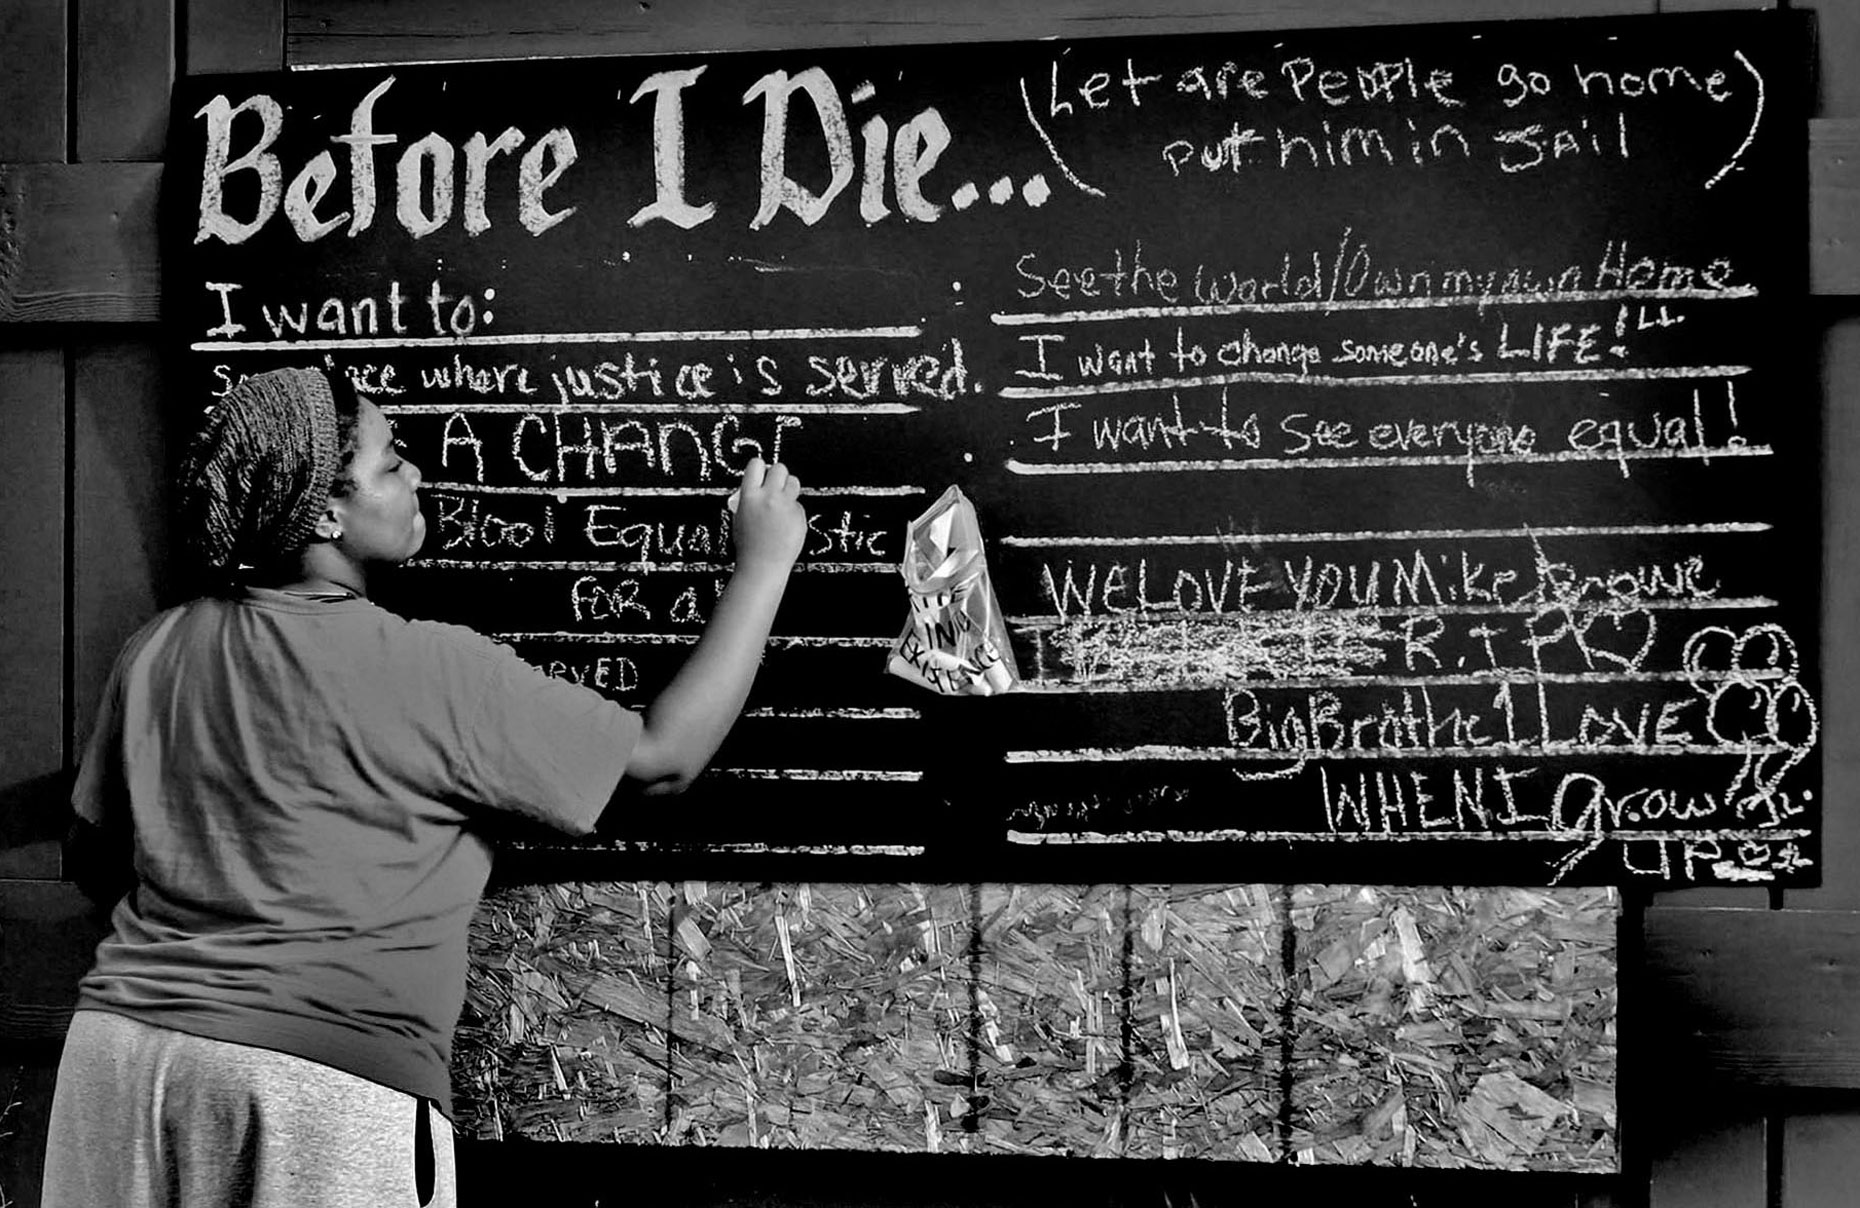 Before I Die...
(Let are People go home
put him in JAil)
I want to:
where justice is served.
A CHANG
Blood Equal
FOR
See the World/Own my own Home
I want to change someone's LIFE!
I want to see everyone equal!
WE LOVE YOU Mike
R.I.P
Big
LOVE
WHEN I grow
UP
IN
EXISTENCE